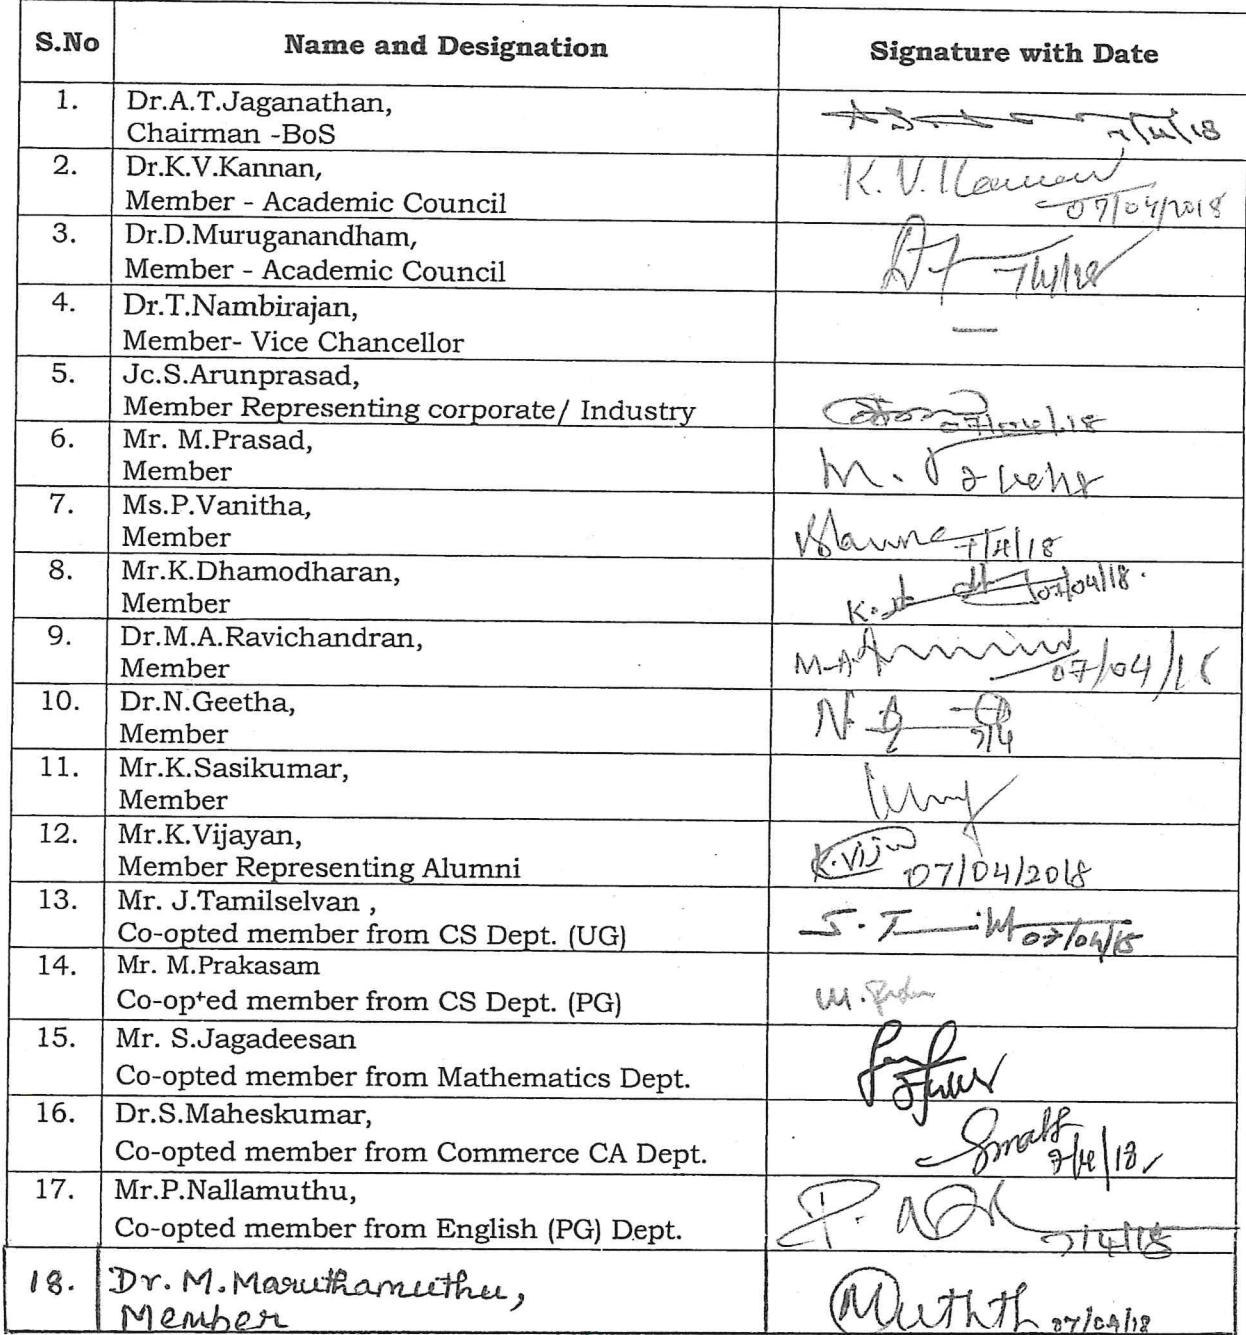 S.No Name and Designation Signature with Date
1. Dr.A.T.Jaganathan,
Chairman -BoS
7/4/18
2. Dr.K.V.Kannan,
Member - Academic Council
K.V.Kannan
07/04/2018
3. Dr.D.Muruganandham,
Member - Academic Council
7/4/18
4. Dr.T.Nambirajan,
Member- Vice Chancellor
–
5. Jc.S.Arunprasad,
Member Representing corporate/ Industry
07/04/18
6. Mr. M.Prasad,
Member
M.
7. Ms.P.Vanitha,
Member
7/4/18
8. Mr.K.Dhamodharan,
Member
07/04/18.
9. Dr.M.A.Ravichandran,
Member
M.A
07/04/18
10. Dr.N.Geetha,
Member
N.
7/4
11. Mr.K.Sasikumar,
Member
12. Mr.K.Vijayan,
Member Representing Alumni
K.Vij
07/04/2018
13. Mr. J.Tamilselvan ,
Co-opted member from CS Dept. (UG)
J.T
07/04/18
14. Mr. M.Prakasam
Co-opted member from CS Dept. (PG)
M.
15. Mr. S.Jagadeesan
Co-opted member from Mathematics Dept.
16. Dr.S.Maheskumar,
Co-opted member from Commerce CA Dept.
7/4/18
17. Mr.P.Nallamuthu,
Co-opted member from English (PG) Dept.
P.
7/4/18
18. Dr. M. Maruthamuthu,
Member
Muthth 07/04/18